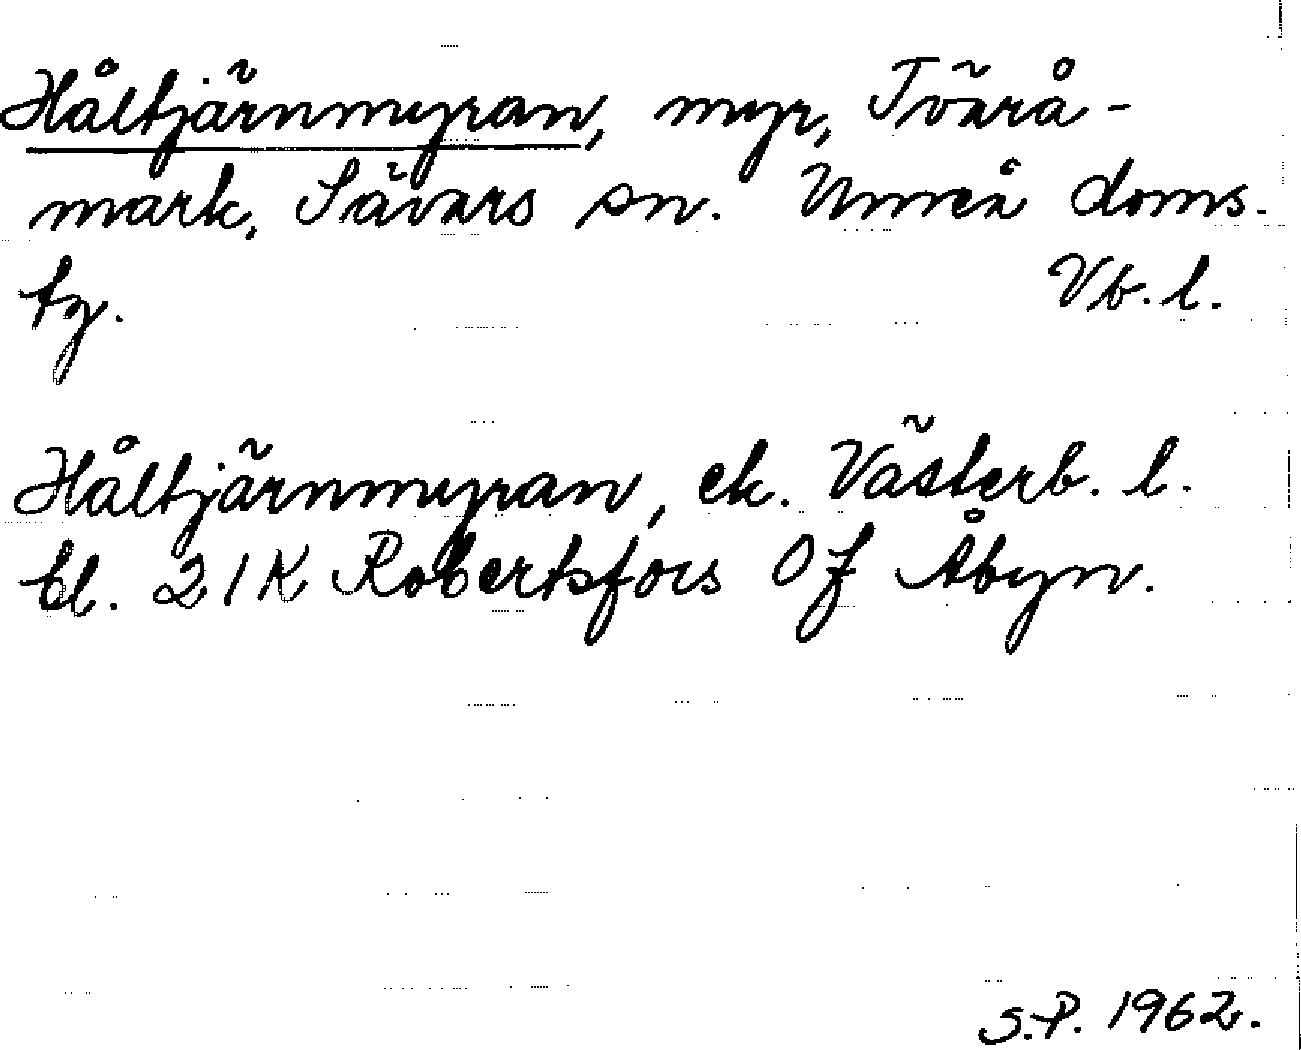 Håltjärnmyran, myr, Tvärå-
mark, Sävars sn. Umeå doms.
tg. Vb. l.
Håltjärnmyran, ek. Västerb. l.
bl. 21K Robertsfors 0f Åbyn.
S.P. 1962.